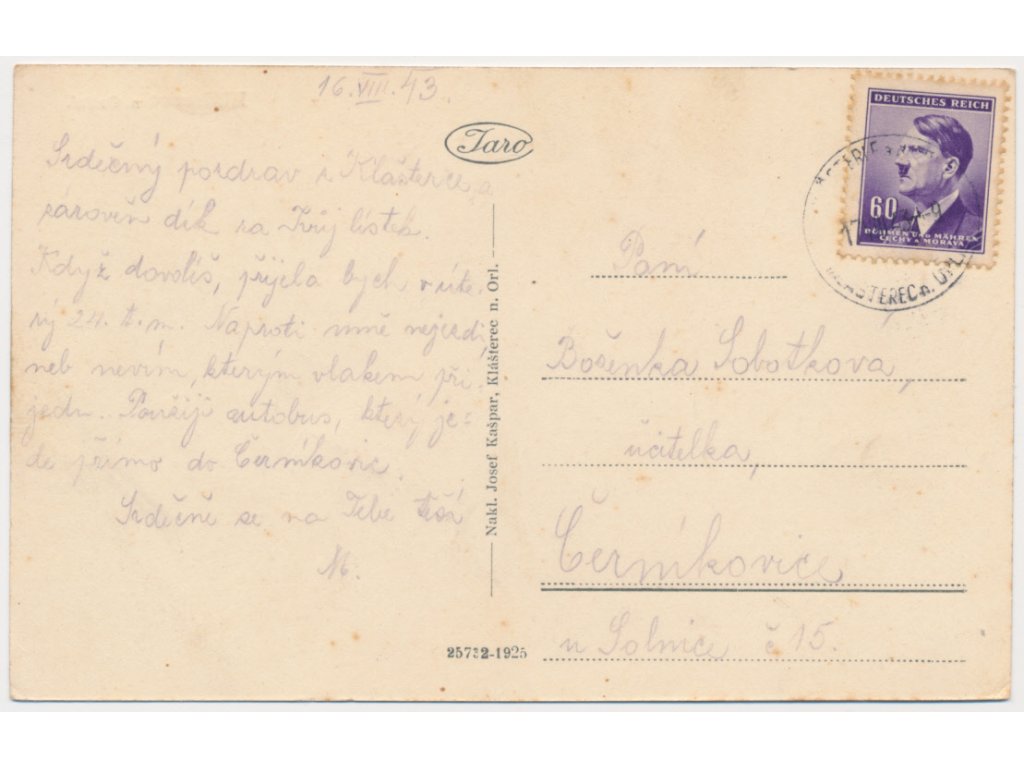 16.VIII.43
Taro
Srdečný pozdrav z Klášterce, a
zároveň dík za Tvůj lístek.
Když dovolíš, přijela bych v úte-
rý 24. t. m. Naproti mně nejezdi,
neb nevím, kterým vlakem při-
jedu. Použiji autobus, který je-
de přímo do Černíkovic.
Srdečně se na Tebe těší
M.
Nakl. Josef Kašpar, Klášterec n. Orl.
25732-1925
DEUTSCHES REICH
60
BÖHMEN UND MÄHREN
ČECHY A MORAVA
KLÁŠTEREC n. ORL.
Paní
Boženka Sobotkova,
učitelka,
Černíkovice
u Solnice č 15.